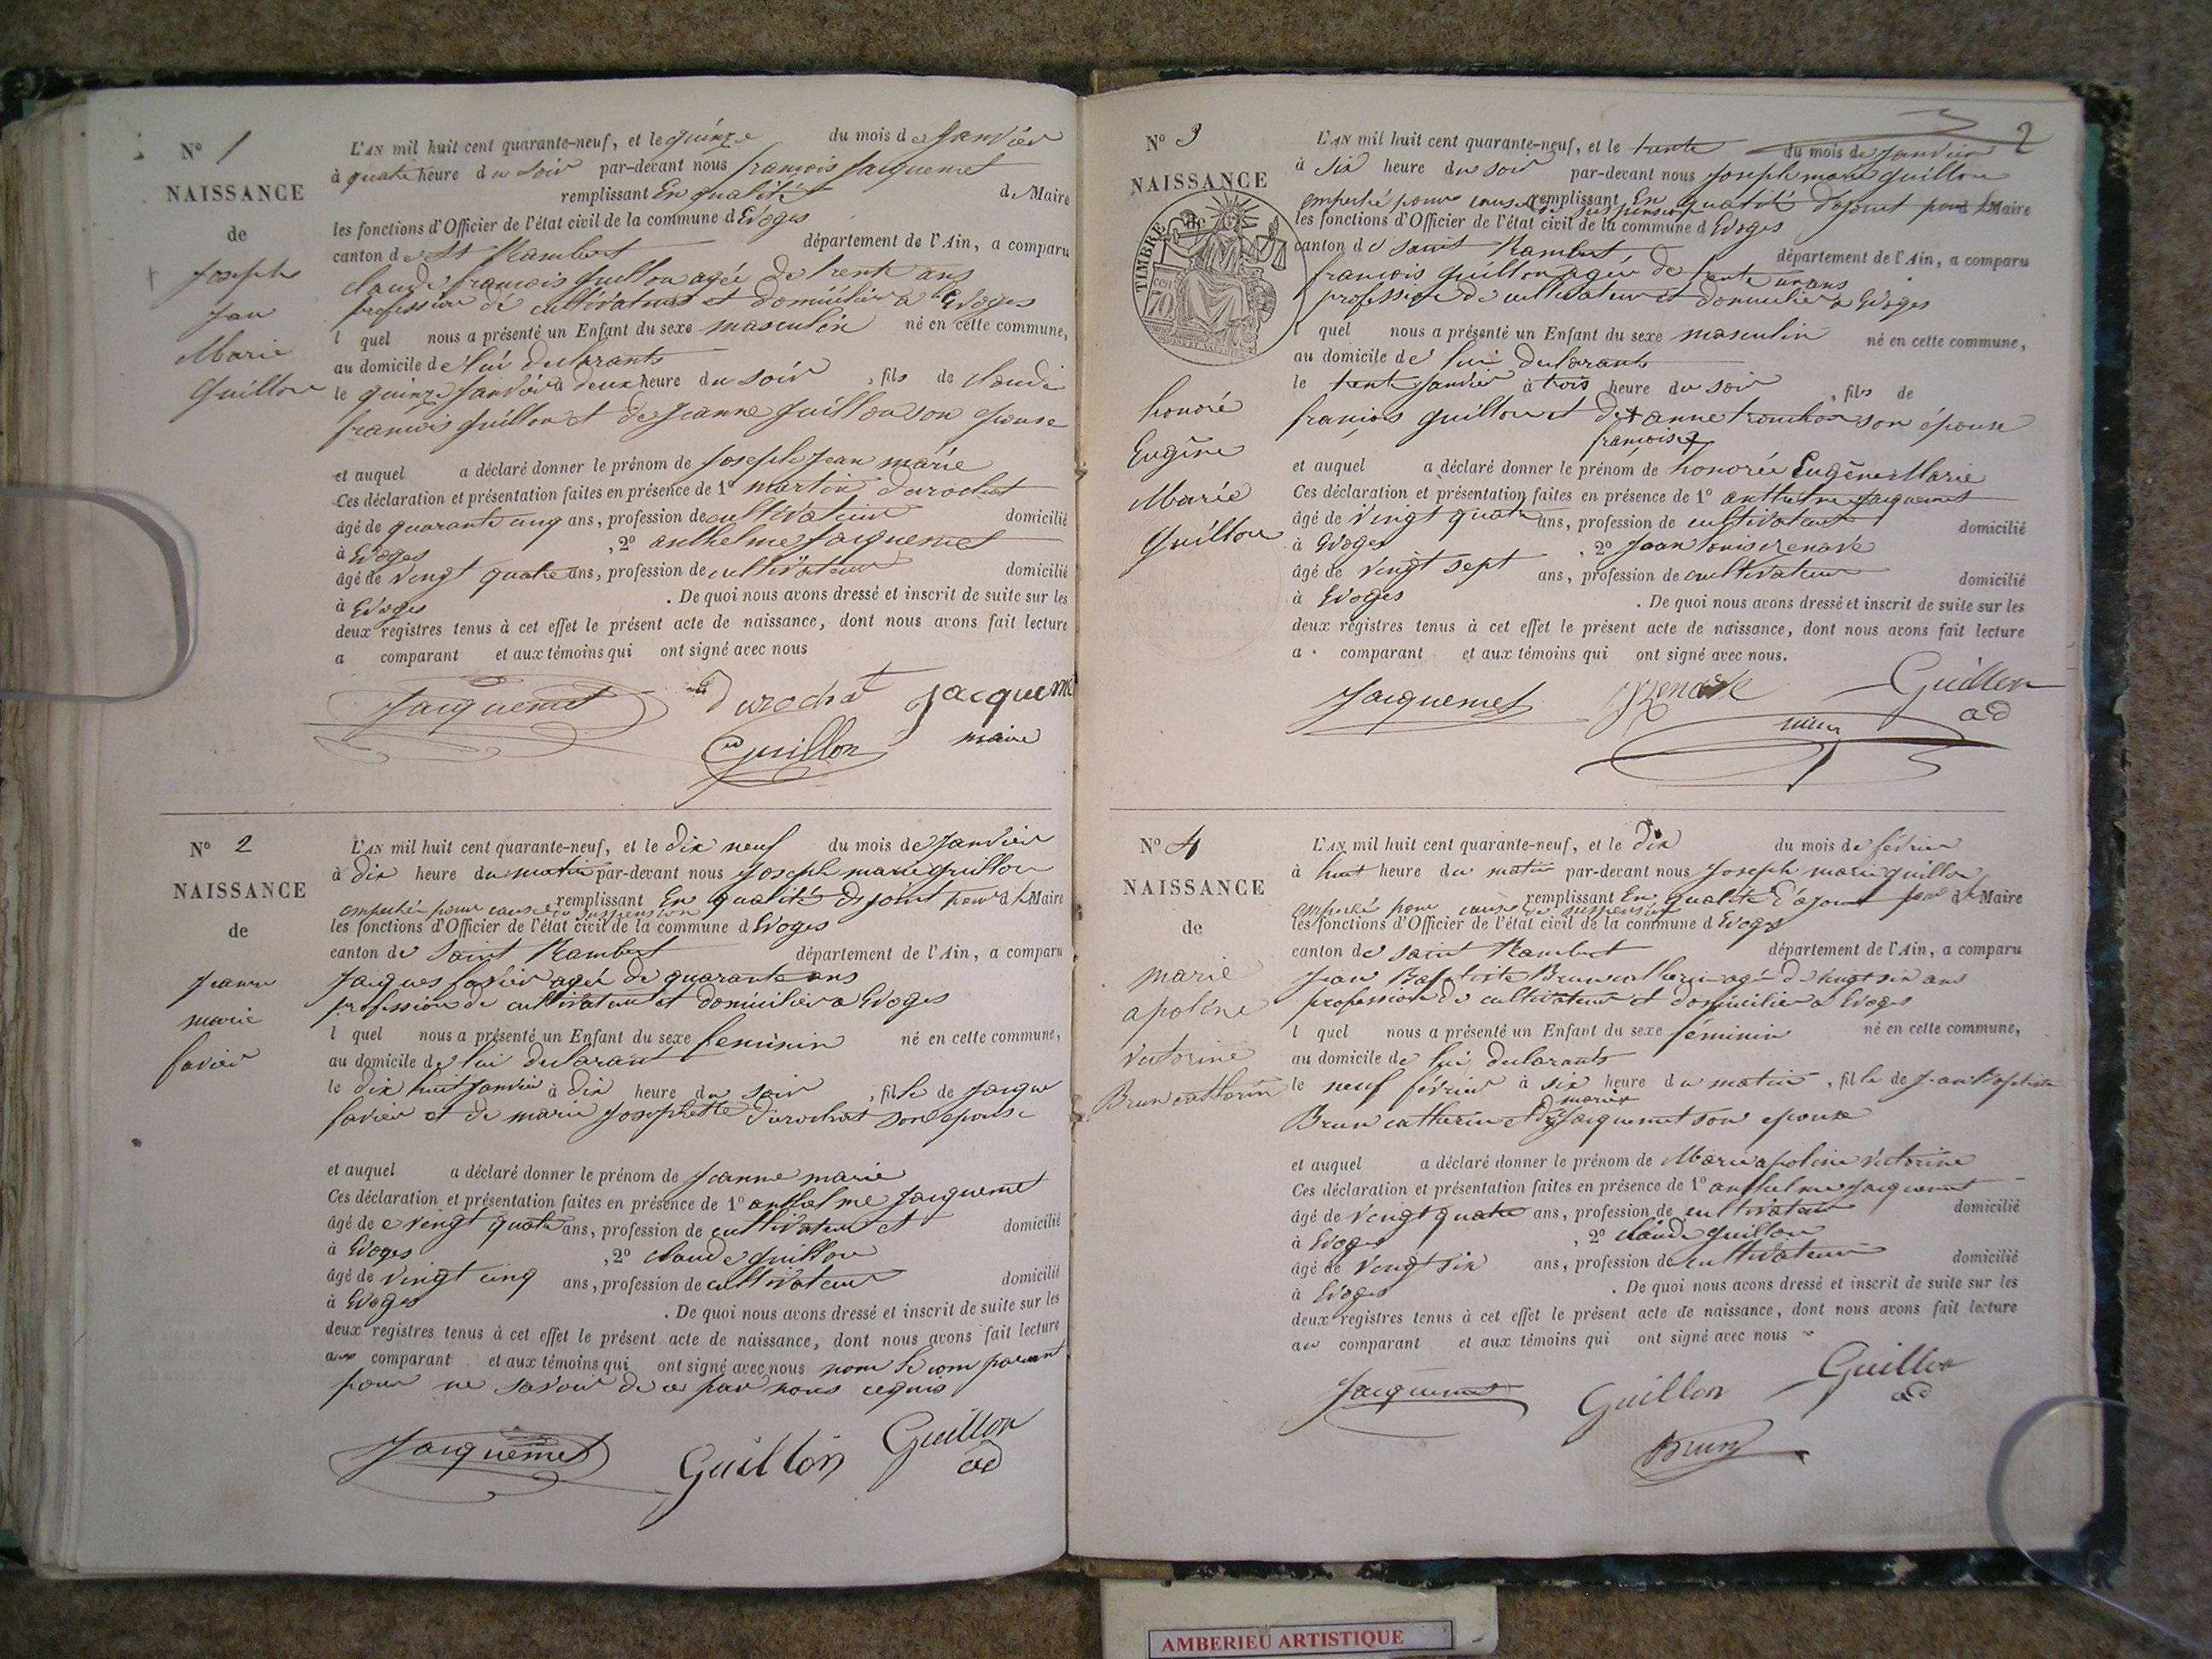 N° 1
NAISSANCE
de
Joseph
Jan
Marie
Guillon
L'AN mil huit cent quarante-neuf, et le quinze du mois de Janvier
à quatre heure du soir par-devant nous françois Jacquemet
remplissant En qualité de Maire
les fonctions d'Officier de l'état civil de la commune d Evoges
canton de St Rambert département de l'Ain, a comparu
Claude françois Guillon agée de trente ans
profession de cultivateur et domicilier a Evoges
l quel nous a présenté un Enfant du sexe masculin né en cette commune,
au domicile de lui declarants
le quinze Janvier à deux heure du soir, fils de Claude
françois Guillon et de Jeanne Guillon son epouse
et auquel a déclaré donner le prénom de Joseph Jean marie
Ces déclaration et présentation faites en présence de 1° martin durochat
âgé de quarante cinq ans, profession de cultivateur domicilié
à Evoges, 2° anthelme Jacquemet
âgé de vingt quatre ans, profession de cultivateur domicilié
à Evoges. De quoi nous avons dressé et inscrit de suite sur les
deux registres tenus à cet effet le présent acte de naissance, dont nous avons fait lecture
a comparant et aux témoins qui ont signé avec nous
Jacquemet Durochat Jacquemet
Guillon maire
N° 2
NAISSANCE
de
Jeanne
marie
favier
L'AN mil huit cent quarante-neuf, et le dix neuf du mois de Janvier
à dix heure du matin par-devant nous Joseph marie Guillon
remplissant En qualité djoint pour le Maire
empechée pour cause de suspension
les fonctions d'Officier de l'état civil de la commune d Evoges
canton de Saint Rambert département de l'Ain, a comparu
Jacques favier agée de quarante ans
profession de cultivateur et domicilier a Evoges
l quel nous a présenté un Enfant du sexe feminin né en cette commune,
au domicile de lui declarant
le dix huit Janvier à dix heure du soir, fille de Jacque
favier et de marie Josephette durochat son epouse
et auquel a déclaré donner le prénom de Jeanne marie
Ces déclaration et présentation faites en présence de 1° anthelme Jacquemet
âgé de vingt quatre ans, profession de cultivateur et domicilié
à Evoges, 2° claude Guillon
âgé de vingt cinq ans, profession de cultivateur domicilié
à Evoges. De quoi nous avons dressé et inscrit de suite sur les
deux registres tenus à cet effet le présent acte de naissance, dont nous avons fait lecture
au comparant et aux témoins qui ont signé avec nous nom le comparant
pour ne savoir de ce par nous requis
Jacquemet Guillon Guillon
ad
2
N° 3
NAISSANCE
de
TIMBRE
70
honoré
Eugêne
Marie
Guillon
L'AN mil huit cent quarante-neuf, et le trente du mois de Janvier
à six heure du soir par-devant nous Joseph marie Guillon
remplissant En qualité dajoint pour le Maire
empechée pour cause de suspension
les fonctions d'Officier de l'état civil de la commune d Evoges
canton de saint Rambert département de l'Ain, a comparu
françois Guillon agée de trente un ans
profession de cultivateur et domicilier a Evoges
l quel nous a présenté un Enfant du sexe masculin né en cette commune,
au domicile de lui declarants
le trente Janvier à trois heure du soir, fils de
françois Guillon et de anne trouchon son épouse
françoise
et auquel a déclaré donner le prénom de honorée Eugêne Marie
Ces déclaration et présentation faites en présence de 1° anthelme Jacquemet
âgé de vingt quatre ans, profession de cultivateur domicilié
à Evoges, 2° Jean Louis renave
âgé de vingt sept ans, profession de cultivateur domicilié
à Evoges. De quoi nous avons dressé et inscrit de suite sur les
deux registres tenus à cet effet le présent acte de naissance, dont nous avons fait lecture
a comparant et aux témoins qui ont signé avec nous.
Jacquemet Guillon
ad
N° 4
NAISSANCE
de
marie
apoline
victorine
Brun catherin
L'AN mil huit cent quarante-neuf, et le dix du mois de février
à huit heure du matin par-devant nous Joseph marie guillon
remplissant En qualité d'ajoint pour le Maire
empeché pour cause de suspension
les fonctions d'Officier de l'état civil de la commune d Evoges
canton de saint Rambert département de l'Ain, a comparu
Jean Baptiste Brun catherin agé de six ans
profession de cultivateur et domicilier a Evoges
l quel nous a présenté un Enfant du sexe féminin né en cette commune,
au domicile de lui declarants
le neuf février à six heure du matin, fille de Jean Baptiste
Brun catherin et de marie Jacquemet son epouse
et auquel a déclaré donner le prénom de Marie apoline victorine
Ces déclaration et présentation faites en présence de 1° anthelme Jacquemet
âgé de vingt quatre ans, profession de cultivateur domicilié
à Evoges, 2° claude guillon
âgé de vingt six ans, profession de cultivateur domicilié
à Evoges. De quoi nous avons dressé et inscrit de suite sur les
deux registres tenus à cet effet le présent acte de naissance, dont nous avons fait lecture
au comparant et aux témoins qui ont signé avec nous
Jacquemet Guillon Guillon
ad
Brun
AMBERIEU ARTISTIQUE